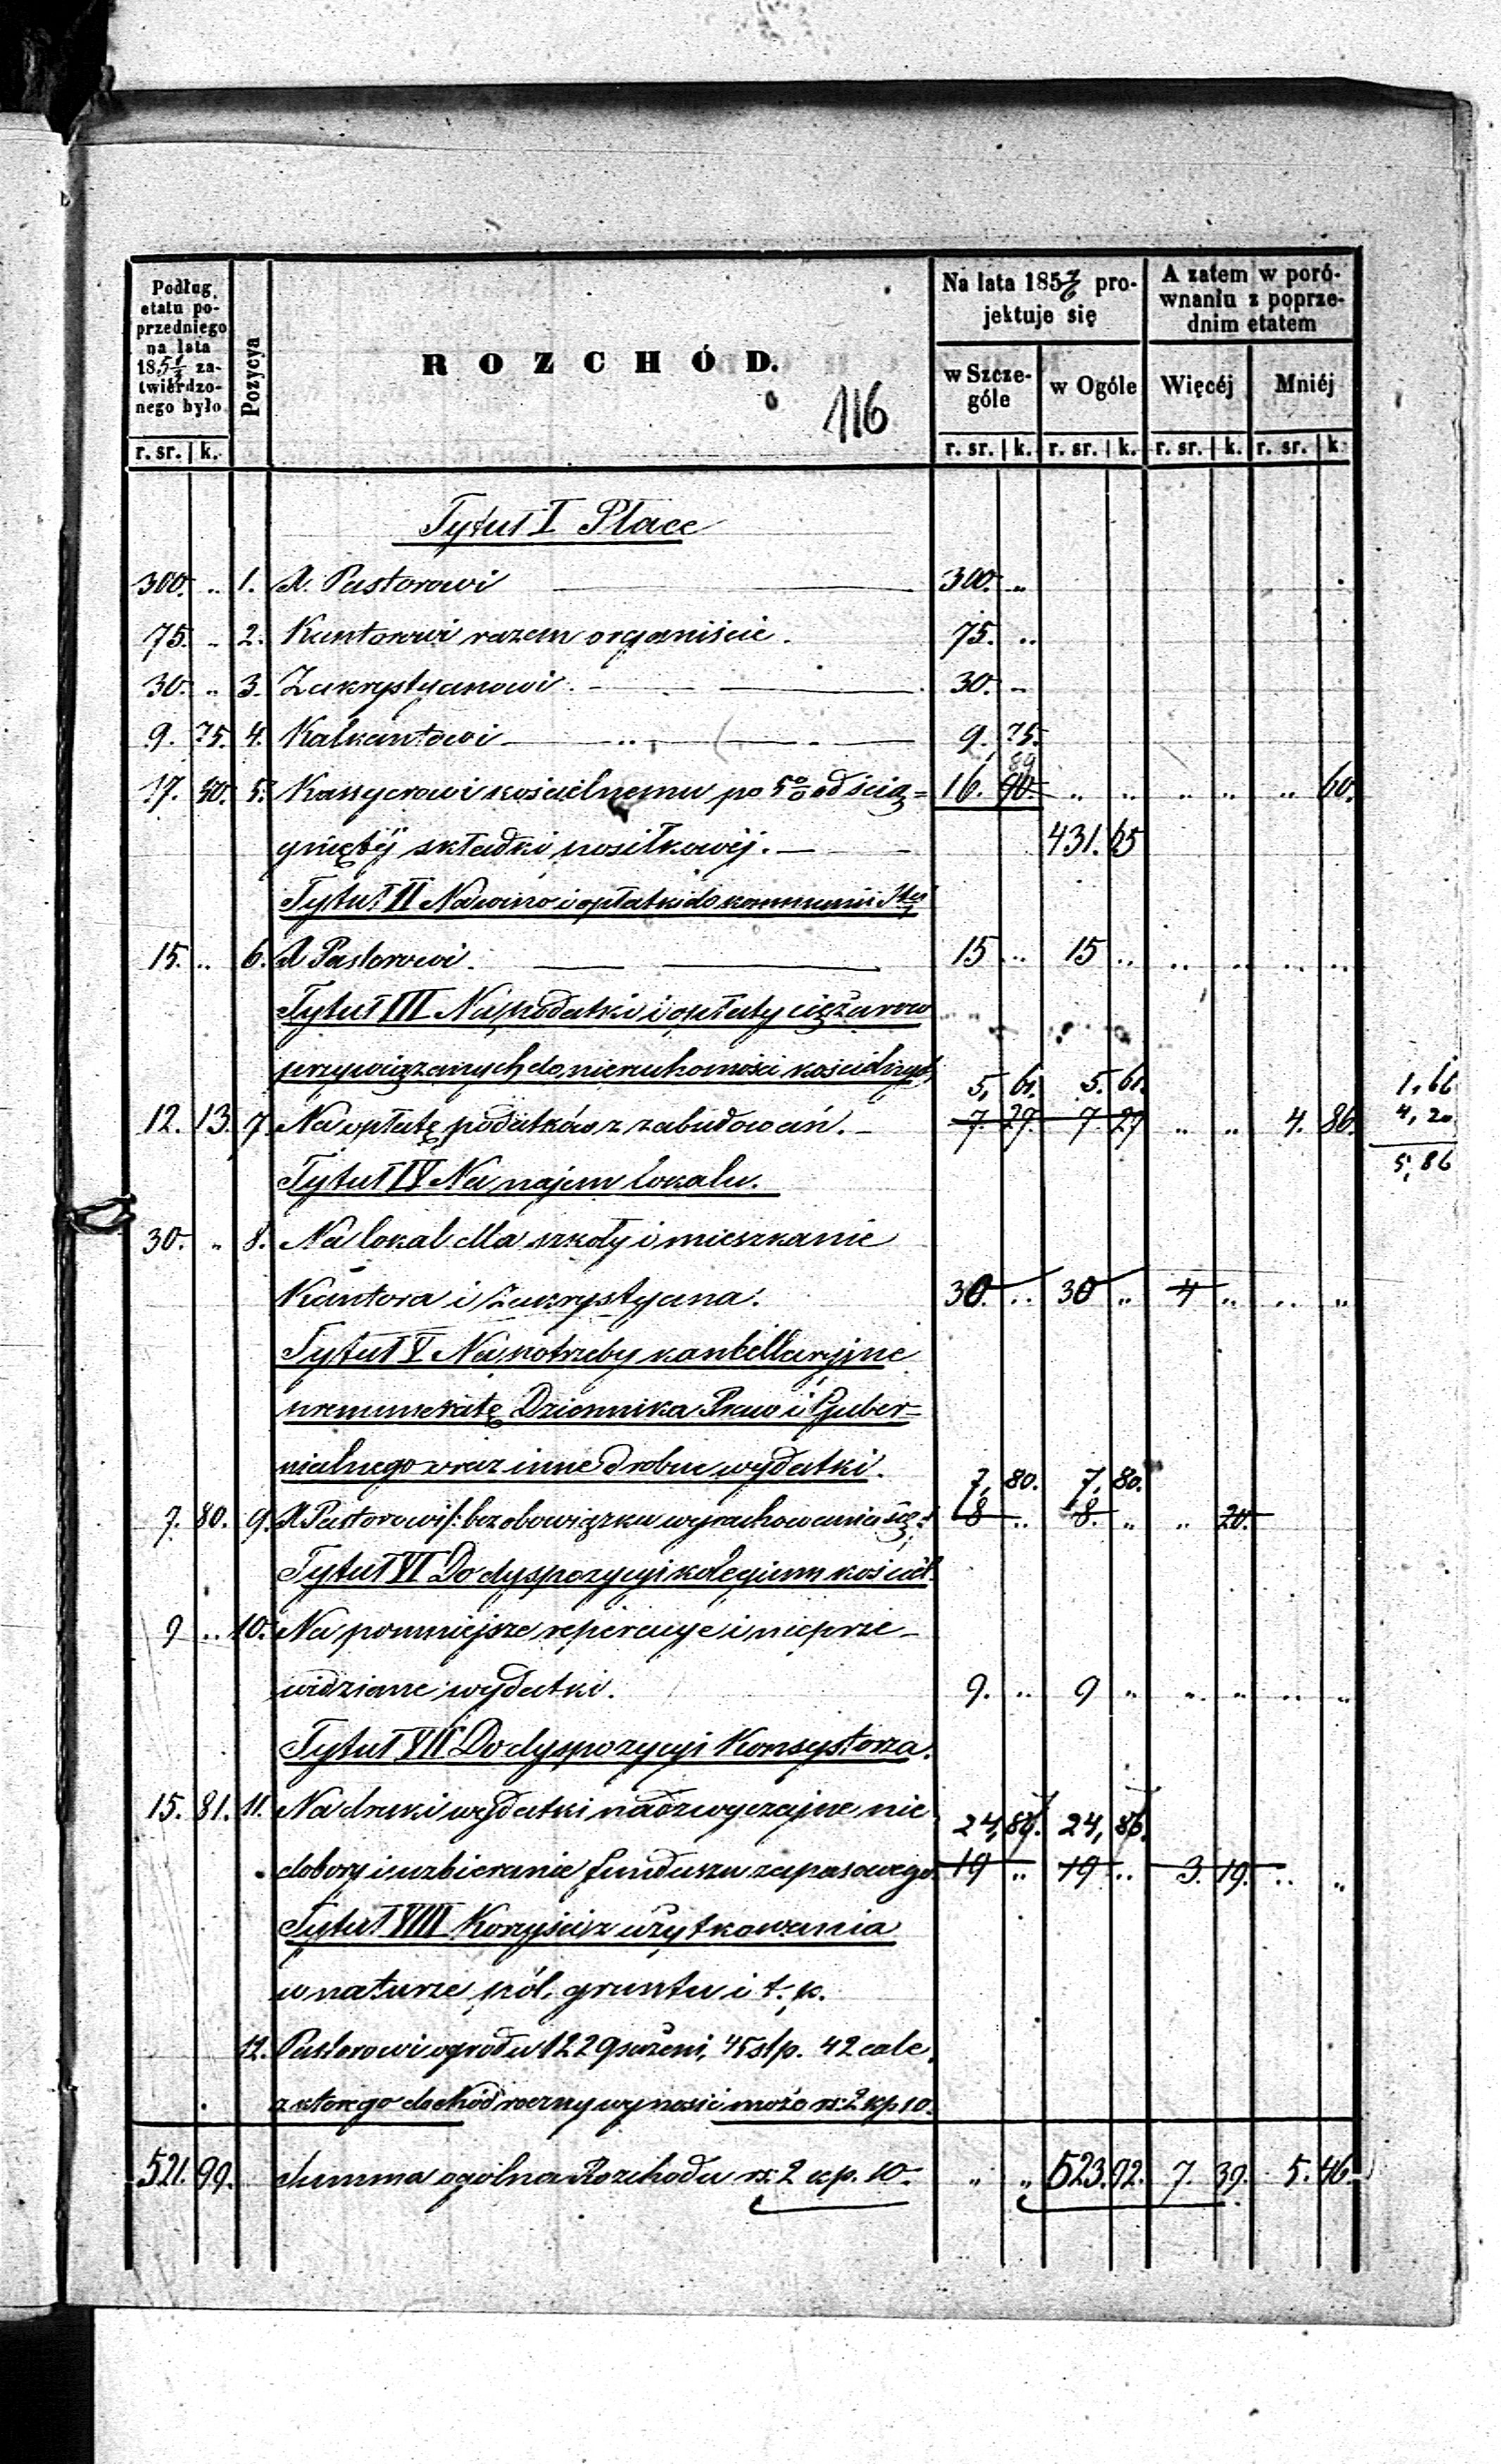 Podług etatu poprzedniego na lata 185 zatwierdzonego było
Pozycya
ROZCHÓD.
116
Na lata 185 projektuje się
A zatem w porównaniu z poprzednim etatem
w Szczególe w Ogóle Więcéj Mniéj
r. sr. k. r. sr. k. r. sr. k. r. sr. k. r. sr. k.
Tytuł I Płace
300. „ 1. X. Pastorowi 300. „
75. „ 2. Kantorowi razem organiście. 75. „
30. „ 3. Zakrystyanowi. 30. „
9. 75. 4. Kalkantowi 9. 75.
17. 50. 5. Kassyerowi kościelnemu po 5% od ścią= 16. 90. 89 „ „ „ „ „ 60.
gniętéj składki posiłkowéj. 431. 65
Tytuł II Na wino i opłatki do kommunii Stéj
15. „ 6. X Pastorowi. 15 „ 15 „ „ „ „ „
Tytuł III Na podatki i opłaty ciężarow
przywiązanych do nieruchomości kościelnych 5. 61. 5. 61. 1,66
12. 13. 7. Na opłatę podatków z zabudowań. 7. 27. 7. 27 „ „ 4. 86. 4,20
5,86
Tytuł IV Na najem lokalu.
30. „ 8. Na lokal dla szkoły i mieszkanie
Kantora i Zakrystyana. 30. „ 30 „ 4 „ „ „
Tytuł V Na potrzeby kancellaryjne
prenumeratę Dziennika Praw i Guber=
nialnego wraz inne drobne wydatki. 7, 80. 7, 80.
7. 80. 9. X Pastorowi /: bez obowiązku wyrachowania się :/ 8 „ 8. „ „ 20.
Tytuł VI Do dyspozycyi kolegium kościel.
9 „ 10. Na pomniejsze reperacye i nieprze-
widziane wydatki. 9. „ 9 „ „ „ „ „
Tytuł VII Do dyspozycyi Konsystorza.
15. 81. 11. Na druki wydatki nadzwyczajne nie 24, 86. 24, 86.
dobory i uzbieranie funduszu zapasowego 19 „ 19 „ 3. 19. „ „
Tytuł VIII Korzyści z użytkowania
w naturze pól, gruntu i t. p.
12. Pastorowi ogrodu 1229 sążeni, 45 stp. 42 cale,
z ktorego dochód roczny wynosić może rs. 2 kp 10.
521. 99. Summa ogólna Rozchodu rs. 2 kp. 10. „ „ 523. 92. 7. 39. 5. 46.